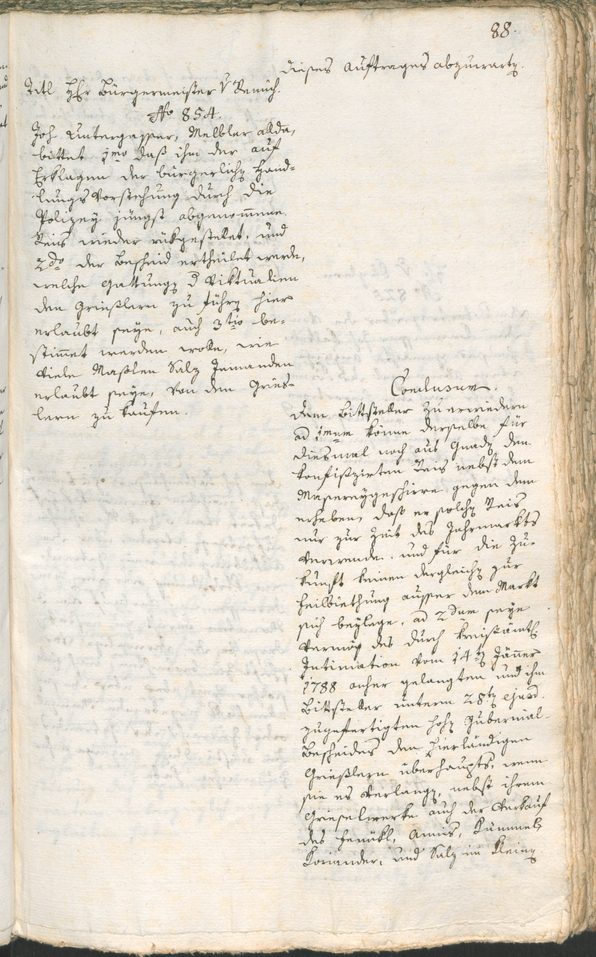 88.
dieses Auftrages abzuwartt.
Titl Hr Bürgermeister v Remich.
No 854.
Joh. Untergasser, Melbler allda,
bittet 1mo daß ihm der auf
Erklagen der bürgerlichen Hand-
lungs Vorstehung durch die
Polizey jüngst abgenommene
Reis wieder rükgestellet, und
2do der Bescheid ertheilet werde,
welche Gattungen d Viktualien
den Grieslern zu führen hier
erlaubt seye, auch 3tio be-
stimmet werden wolle, wie
viele Maßlen Salz Jemanden
erlaubt seye, von den Gries-
lern zu kaufen.
Conclusum.
Dem Bittsteller zu erwiedern
ad 1mum könne derselbe für
diesmal noch aus Gnaden den
konfiszirten Reis nebst dem
gegen dem
erheben, daß er solchen Reis
nur zur Zeit des Jahrmarkts
verwende, und für die Zu-
kunft keinen dergleichen zur
Feilbiethung ausser dem Markt
sich beylege, ad 2dum seye
vermög des durch kreisämtl
Intimation vom 14ten Jänner
1788 anher gelangten und ihm
Bittsteller unterm 28ten ejusd.
zugefertigten hohen Gubernial-
Bescheides den hierländigen
Grieslern überhaupts, wenn
sie es verlangen, nebst ihrem
Grieselwerke auch der Verkauf
des Fenükl, Annis, Kümmels
Koriander, und Salz im Klein